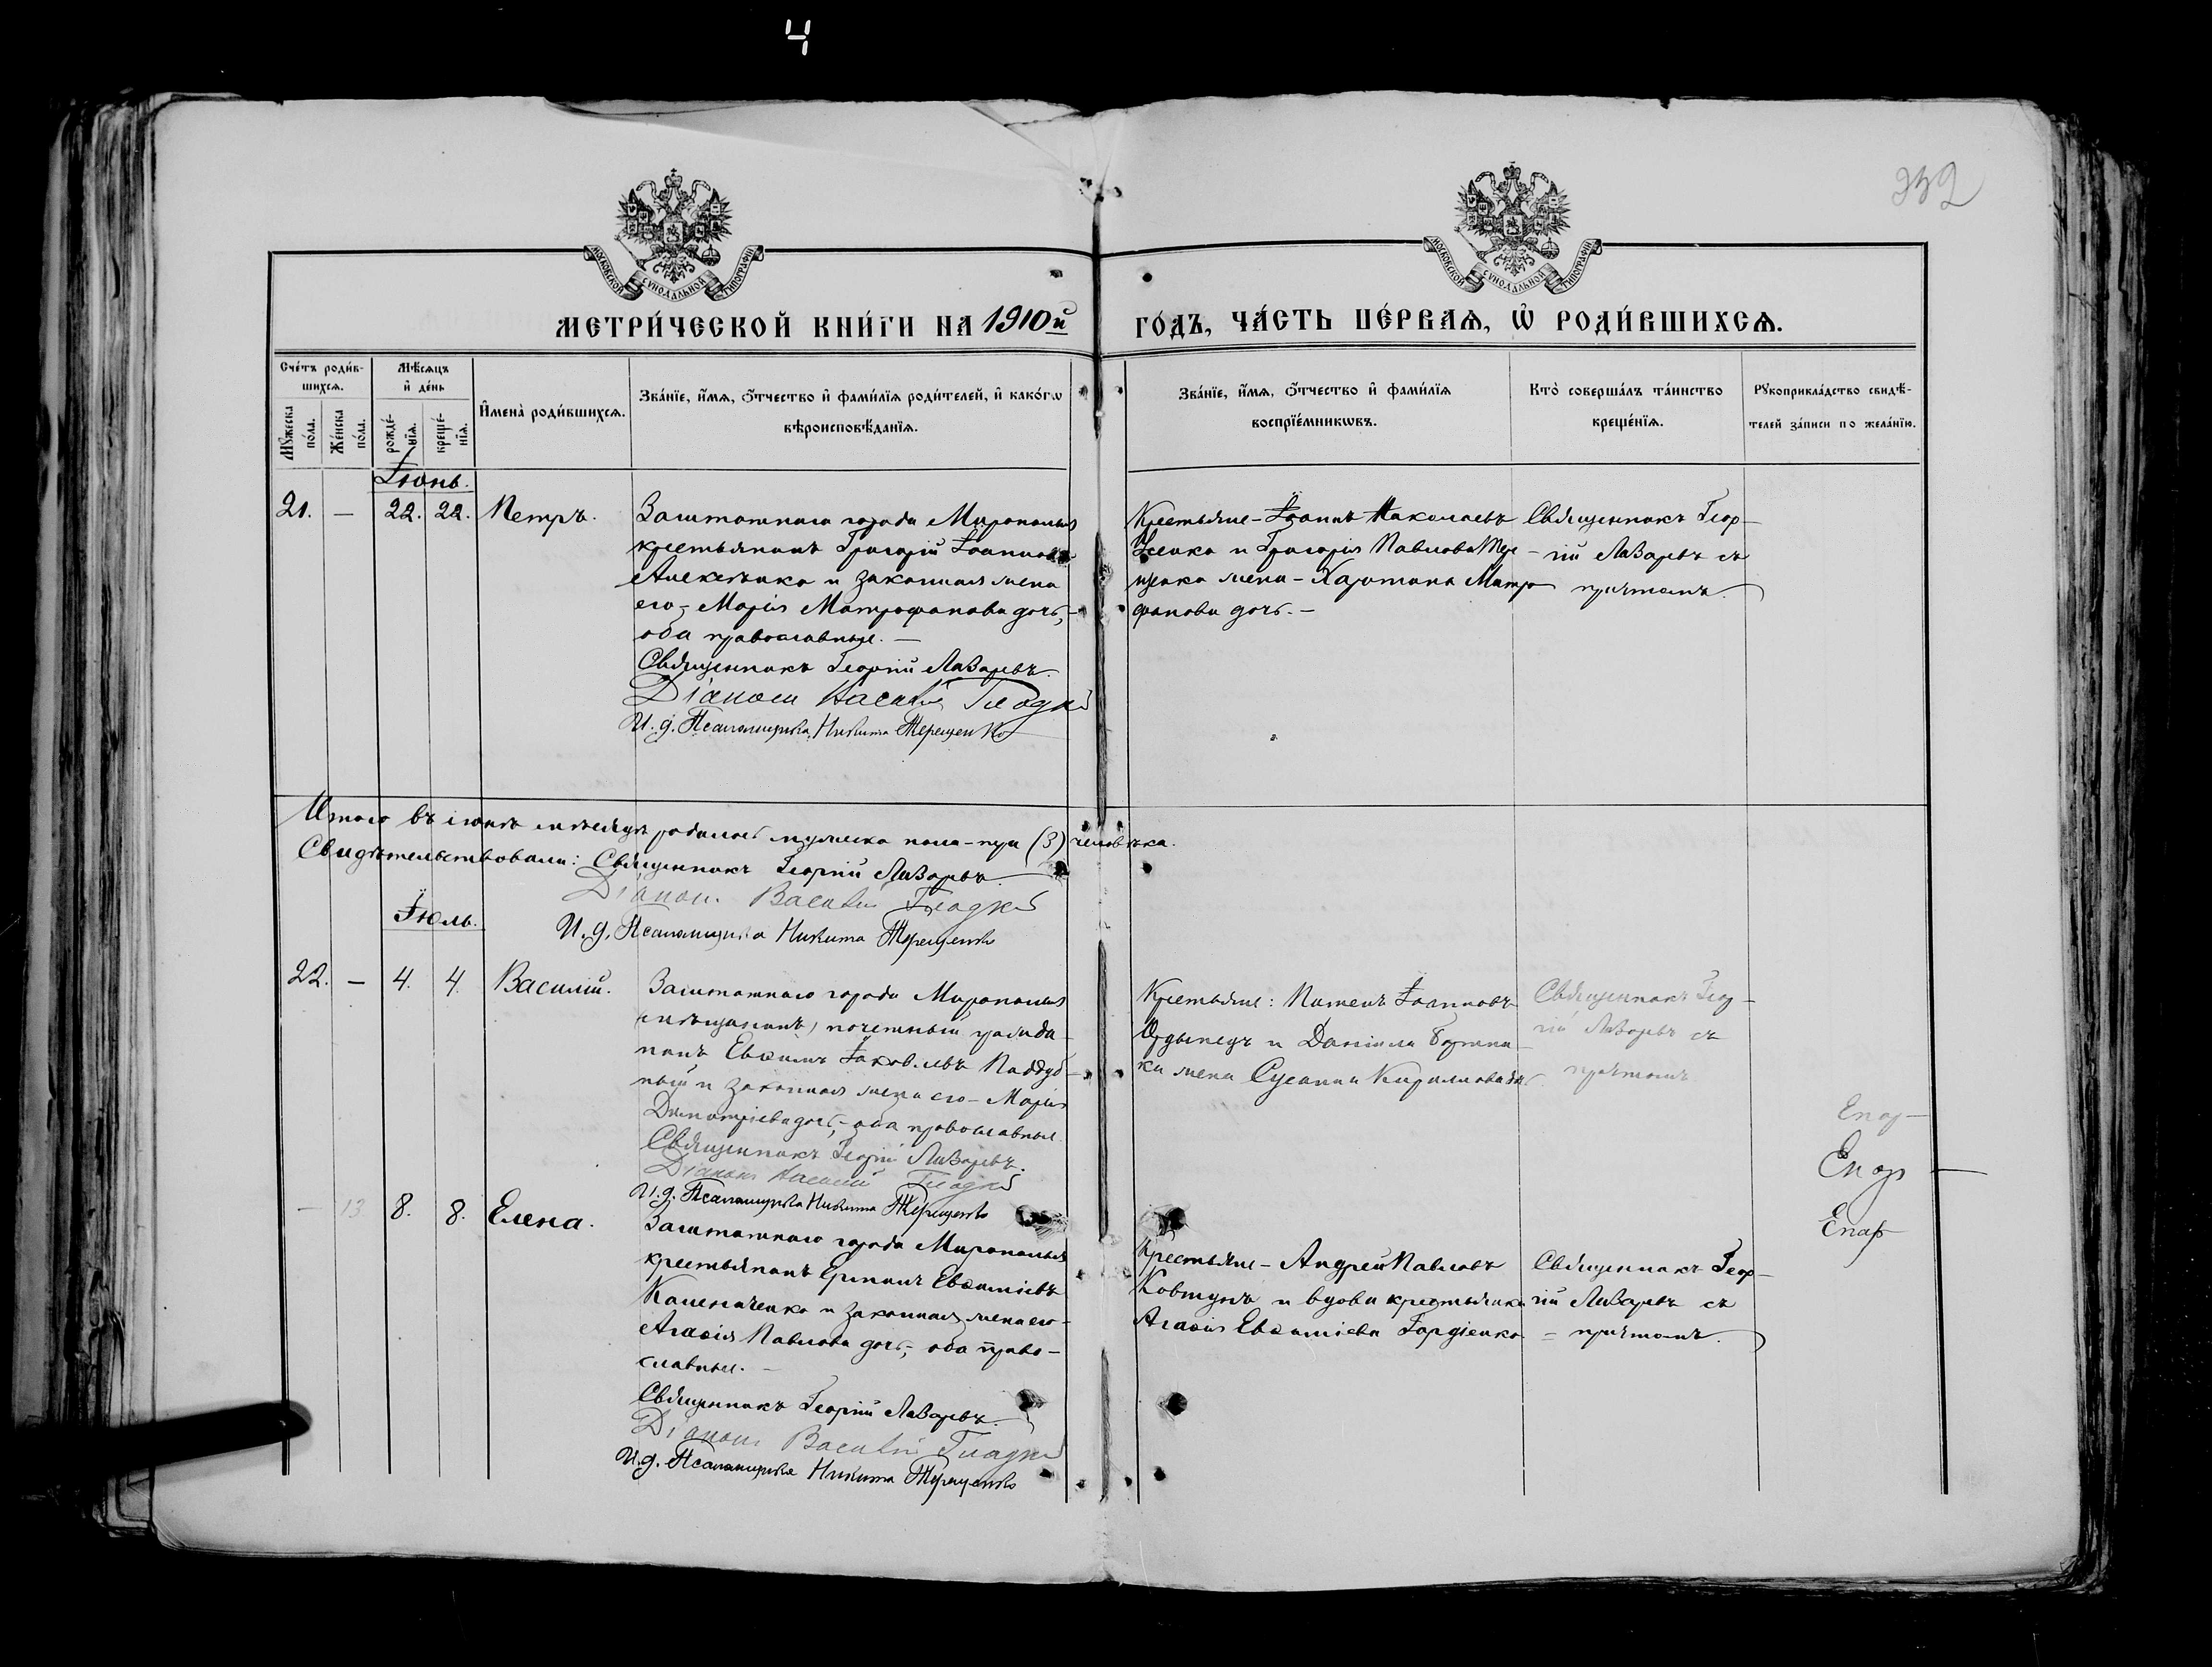 4
МОСКОВСКОЙ СѴНОДАЛЬНОЙ ТИПОГРАФІИ
МОСКОВСКОЙ СѴНОДАЛЬНОЙ ТИПОГРАФІИ
МЕТРИ́ЧЕСКОЙ КНИ́ГИ НА 1910й
ГО́ДЪ, ЧА́СТЬ ПЕ́РВАѦ, Ѡ҆ РОДИ́ВШИХСѦ.
Сче́тъ роди́в-
шихсѧ.
Мꙋ́жеска
по́ла.
Же́нска
по́ла.
Мѣ́сѧцъ
и҆ де́нь
рожде́-
нїѧ.
креще́-
нїѧ.
И҆мена̀ роди́вшихсѧ.
Зва́нїе, и҆́мѧ, ѻ҆́тчество и҆ фами́лїѧ роди́телей, и҆ како́гѡ
вѣроисповѣ́данїѧ.
Зва́нїе, и҆́мѧ, ѻ҆́тчество и҆ фами́лїѧ
воспрїе́мникѡвъ.
Кто̀ соверша́лъ та́инство
креще́нїѧ.
Рꙋкоприкла́дство свидѣ́-
телей за́писи по жела́нїю.
Іюнь.
21. — 22. 22. Петръ.
Заштатнаго города Мирополья
крестьянинъ Григорій Іоанновъ
Алексѣнко и законная жена
его – Марія Митрофанова дочь,
оба православные. —
Священникъ Георгій Лазаревъ.
Діаконъ Василій Гладкій
И. д. Псаломщика Никита Терещенко
Крестьяне – Іоаннъ Николаевъ
и Григорія Павлова Тере-
щенко жена – Харитина Митро
фанова дочь. –
Священникъ Геор-
гій Лазаревъ съ
причтомъ.
Итого въ іюнѣ мѣсяцѣ родилось мужеска пола – три (3) человѣка.
Свидѣтельствовали: Священникъ Георгій Лазаревъ
Діаконъ Василій Гладкій
И. д. Псаломщика Никита Терещенко
Іюль.
22. — 4. 4. Василій.
Заштатнаго города Мирополья
(мѣщанинъ) почетный гражда-
нинъ Евѳимъ Іаковлевъ Поддуб-
ный и законная жена его – Марія
Димитріева дочь, – оба православные.
Священникъ Георгій Лазаревъ.
Діаконъ Василій Гладкій
И. д. Псаломщика Никита Терещенко
Крестьяне: Пименъ Іоанновъ
и Даніила
ка жена Сусанна Кириллова дочь
Священникъ Геор-
гій Лазаревъ съ
причтомъ
Епар-
Епар
Епар
— 13 8. 8. Елена.
Заштатнаго города Мирополья
крестьянинъ Ермилъ Евѳиміевъ
и законная жена его –
Агаѳія Павлова дочь, – оба право-
славные. –
Священникъ Георгій Лазаревъ.
Діаконъ Василій Гладкій
И. д. Псаломщика Никита Терещенко
Крестьяне – Андрей Павловъ
Ковтунъ и вдова крестьянка
Агаѳія Евѳиміева Гордіенко
Священникъ Геор-
гій Лазаревъ съ
причтомъ.